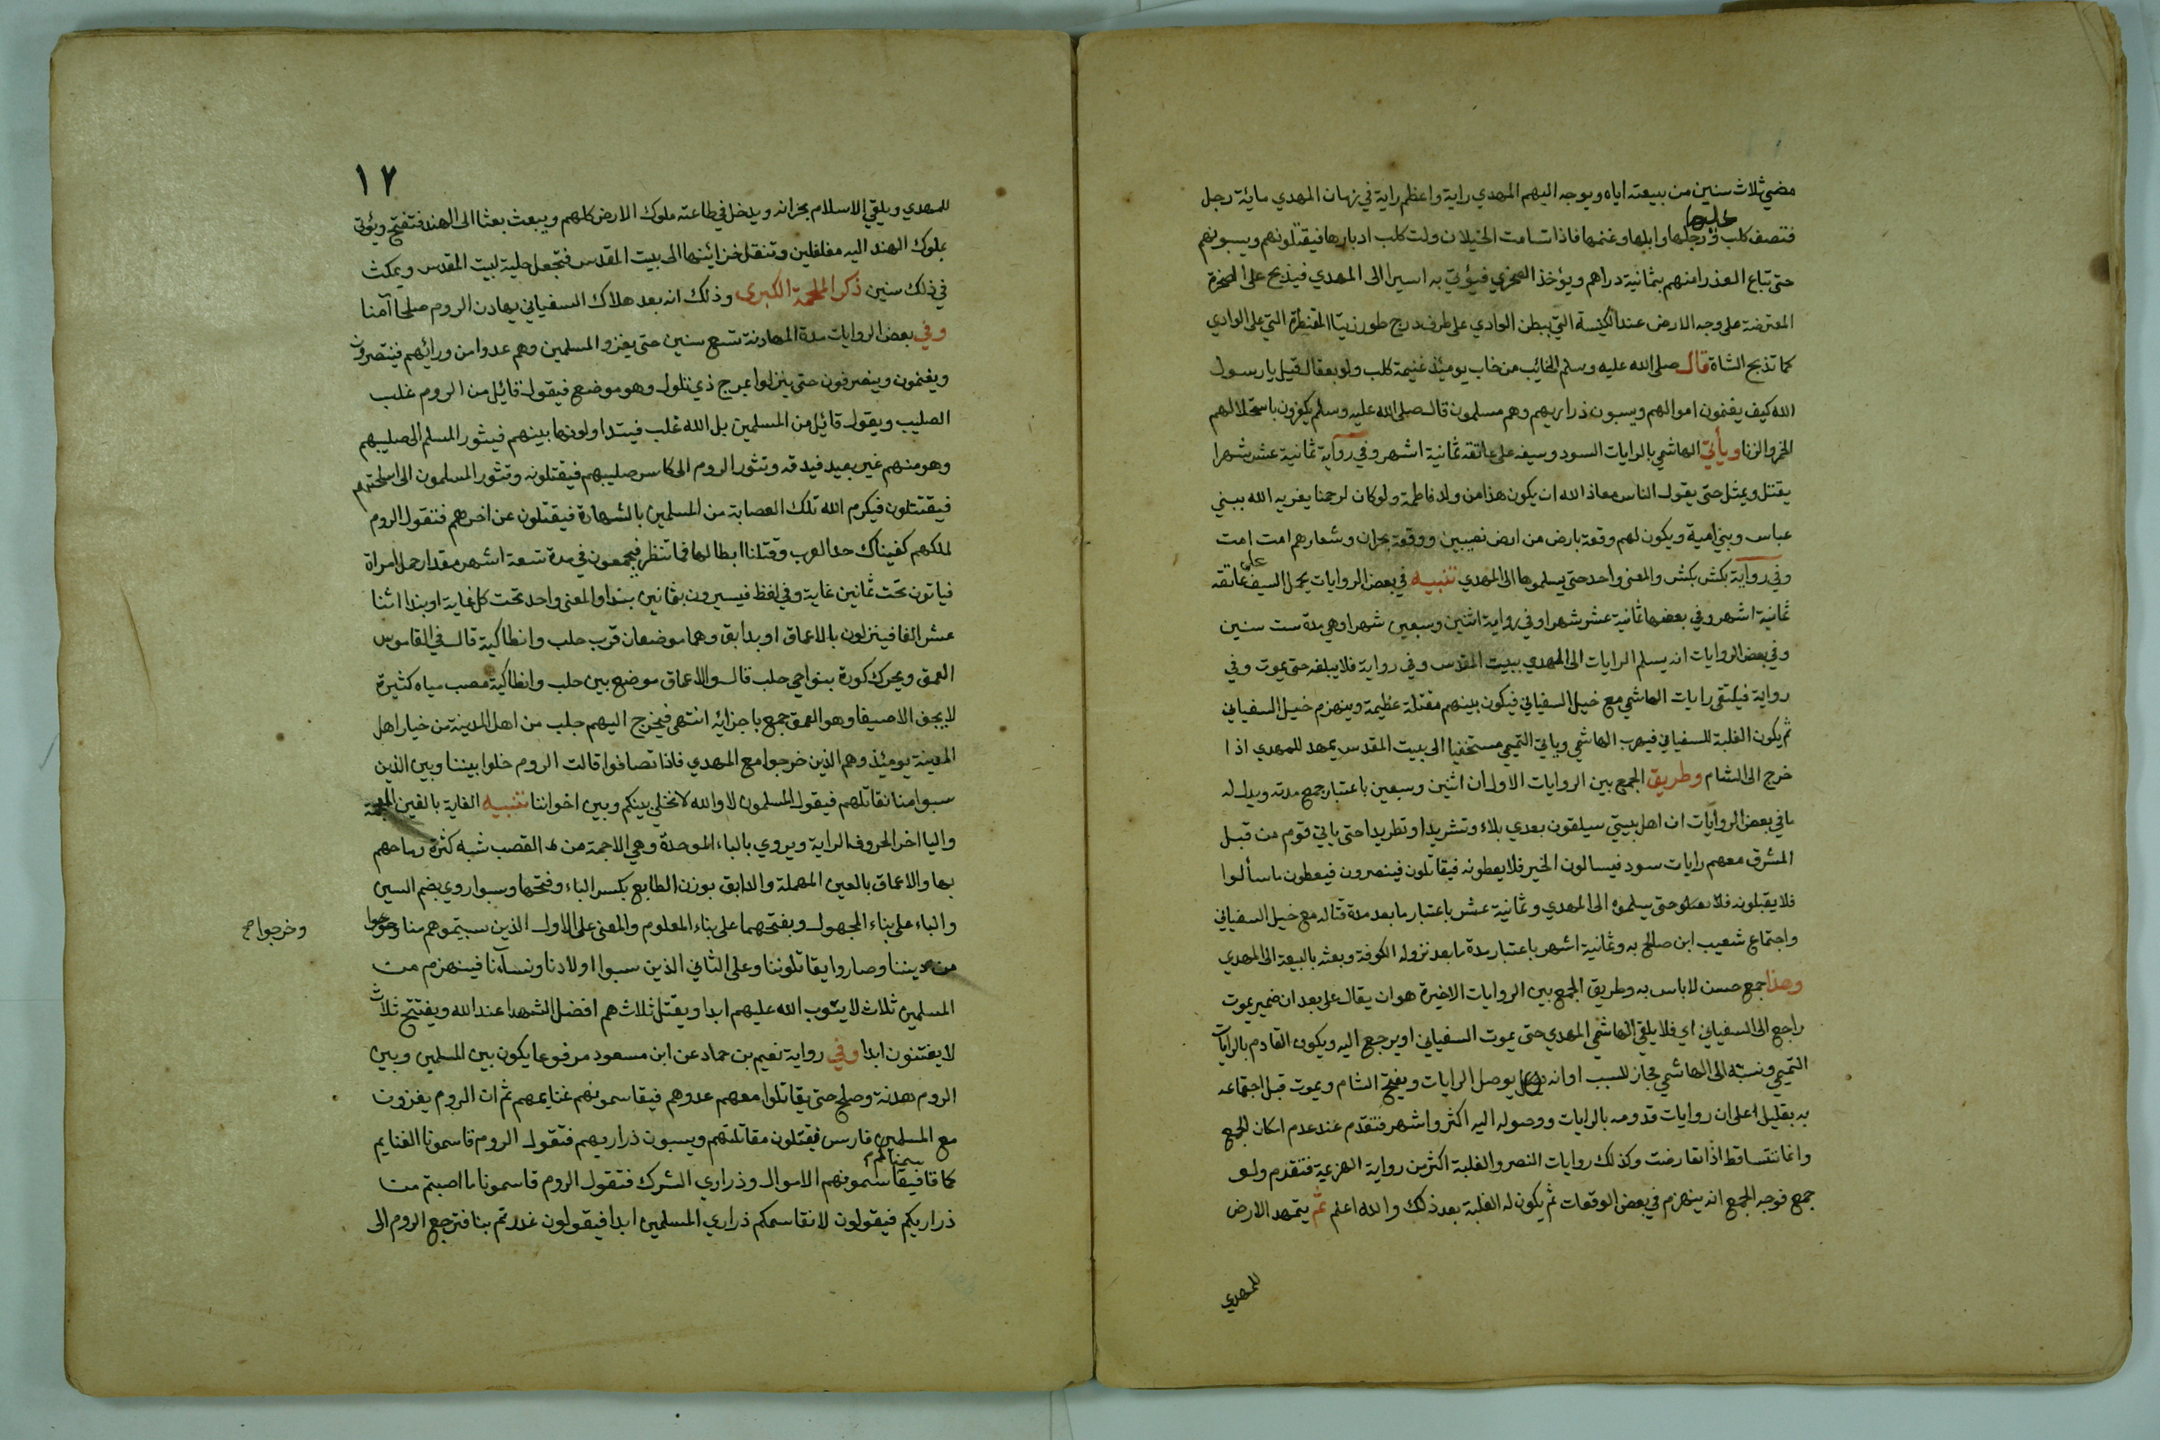 مضي ثلاث سنين من بيعته اياه ويوجه اليهم المهدي راية واعظم راية في زمان المهدي ماية رجل
عليها
فتصف كلب ورجلها وابلها وغنمها فاذا تسامت الخيلان ولت كلب ادبارها فيقتلونهم ويسبونهم
حتى تباع العذرا منهم بثمانية دراهم ويؤخذ الصخري فيؤتى به اسيرا الى المهدي فيذبح على الصخرة
المعترضة على وجه الارض عند الكنيسة التي ببطن الوادي على طرف درج طور زيتا المقنطرة التي على الوادي
كما تذبح الشاة قال صلى الله عليه وسلم الخائب من خاب يومئذ غنيمة كلب ولو بعقال قيل يا رسول
الله كيف يغنمون اموالهم ويسبون ذراريهم وهم مسلمون قال صلى الله عليه وسلم يكفرون باستحلالهم
الخمر والزنا ويأتي الهاشمي بالرايات السود وسيفه على عاتقه ثمانية اشهر وفي رواية ثمانية عشر شهرا
يقتل ويمثل حتى يقول الناس معاذ الله ان يكون هذا من ولد فاطمة ولو كان لرحمنا يغريه الله ببني
عباس وبني امية ويكون لهم وقعة بارض من ارض نصيبين ووقعة بحران وشعارهم امت امت
وفي رواية بكش بكش والمعنى واحد حتى يسلموها الى المهدي تنبيه في بعض الروايات يحمل السيف على عاتقه
ثمانية اشهر وفي بعضها ثمانية عشر شهرا وفي رواية اثنين وسبعين شهرا وهي مدة ست سنين
وفي بعض الروايات انه يسلم الرايات الى المهدي ببيت المقدس وفي رواية فلا يبلغه حتى يموت وفي
رواية فيلتقي رايات الهاشمي مع خيل السفياني فيكون بينهم مقتلة عظيمة وينهزم خيل السفياني
ثم يكون الغلبة للسفياني فيهرب الهاشمي وياتي التميمي مستخفيا الى بيت المقدس يمهد للمهدي اذا
خرج الى الشام وطريق الجمع بين الروايات الاول ان اثنين وسبعين باعتبار جميع مدته ويدل له
ما في بعض الروايات ان اهل بيتي سيلقون بعدي بلاء وتشريدا وتطريدا حتى ياتي قوم من قبل
المشرق معهم رايات سود فيسالون الخير فلا يعطونه فيقاتلون فينصرون فيعطون ما سألوا
فلا يقبلونه فلا حتى يسلموه الى المهدي وثمانية عشر باعتبار ما بعد مدة قتاله مع خيل السفياني
واجتماع شعيب ابن صالح به وثمانية اشهر باعتبار مدة ما بعد نزوله الكوفة وبعثه بالبيعة الى المهدي
وهذا جمع حسن لا باس به وطريق الجمع بين الروايات الاخيرة هو ان يقال على بعد ان ضمير يموت
راجع الى السفياني اي فلا يلقى الهاشمي المهدي حتى يموت السفياني او يرجع اليه ويكون القادم بالرايات
التميمي ونسبته الى الهاشمي مجاز للسبب او انه يوصل الرايات ويفتح الشام ويموت قبل اجتماعه
به بقليل اعلى ان روايات قدومه بالرايات ووصوله اليه اكثر واشهر فتقدم عند عدم امكان الجمع
وانما تتساقط اذا تعارضت وكذلك روايات النصر والغلبة اكثر من رواية الهزيمة فتقدم ولو
جمع فوجه الجمع انه ينهزم في بعض الوقعات ثم يكون له الغلبة بعد ذلك والله اعلم ثم يتمهد الارض
للمهدي
١٧
للمهدي ويلقي الاسلام بجرانه ويدخل في طاعته ملوك الارض كلهم ويبعث بعثا الى الهند فتفتح ويؤتى
بملوك الهند اليه مغلغلين وتنقل خزائنها الى بيت المقدس فتجعل حلية لبيت المقدس ويمكث
في ذلك سنين ذكر الملحمة الكبرى وذلك انه بعد هلاك السفياني يهادن الروم صلحا آمنا
وفي بعض الروايات مدة المهادنة تسع سنين حتى يغزوا المسلمين وهم عدوا من ورائهم فينتصرون
ويغنمون وينصرفون حتى ينزلوا بمرج ذي تلول وهو موضع فيقول قائل من الروم غلب
الصليب ويقول قائل من المسلمين بل الله غلب فيتداولونها بينهم فيثور المسلم الى صليبهم
وهو منهم غير بعيد فيدقه وتثور الروم الى كاسر صليبهم فيقتلونه وتثور المسلمون الى اسلحتهم
فيقتتلون فيكرم الله تلك العصابة من المسلمين بالشهادة فيقتلون عن اخرهم فتقول الروم
لملكهم كفيناك حد العرب وقتلنا ابطالها فما تنتظر فيجمعون في مدة تسعة اشهر مقدار حمل امراة
فياتون تحت ثمانين غاية وفي لفظ فيسيرون بثمانين بندا والمعنى واحد تحت كل غاية او بندا اثنا
عشر الفا فينزلون بالاعماق او بدابق وهما موضعان قرب حلب وانطاكية قال في القاموس
العمق ويحرك كورة بنواحي حلب قال والاعماق موضع بين حلب وانطاكية مصب مياه كثيرة
لا يجف الا صيفا وهو العمق جمع باجزائه انتهى فيخرج اليهم جلب من اهل المدينة من خيار اهل
المدينة يومئذ وهم الذين خرجوا مع المهدي فاذا تصافوا قالت الروم خلوا بيننا وبين الذين
سبوا منا نقاتلهم فيقول المسلمون لا والله لا نخلي بينكم وبين اخواننا تنبيه الغاية بالغين المعجمة
واليا اخر الحروف الراية ويروي بالباء الموحدة وهي الاجمة من القصب شبه كثرة رماحهم
بها والاعماق بالعين المهملة والدابق بوزن الطابع بكسر الباء وفتحها وسبوا روي بضم السين
والباء على بناء المجهول وبفتحهما على بناء المعلوم والمعنى على الاول الذين سبيتموهم منا وخرجوا
وخرجوا صح
من ديننا وصاروا يقاتلوننا وعلى الثاني الذين سبوا اولادنا ونسآءنا فينهزم من
المسلمين ثلاث لا يتوب الله عليهم ابدا ويقتل ثلاث هم افضل الشهدا عند الله ويفتتح ثلاث
لا يفتنون ابدا وفي رواية نعيم بن حماد عن ابن مسعود مرفوعا يكون بين المسلمين وبين
الروم هدنة وصلح حتى يقاتلوا معهم عدوهم فيقاسمونهم غنايمهم ثم ان الروم يغزون
مع المسلمين فارس فيقتلون مقاتلتهم ويسبون ذراريهم فتقول الروم قاسمونا الغنايم
سمناكم
كما قا فيقاسمونهم الاموال وذراري الشرك فتقول الروم قاسمونا ما اصبتم من
ذراريكم فيقولون لا نقاسمكم ذراري المسلمين ابدا فيقولون غدرتم بنا فترجع الروم الى